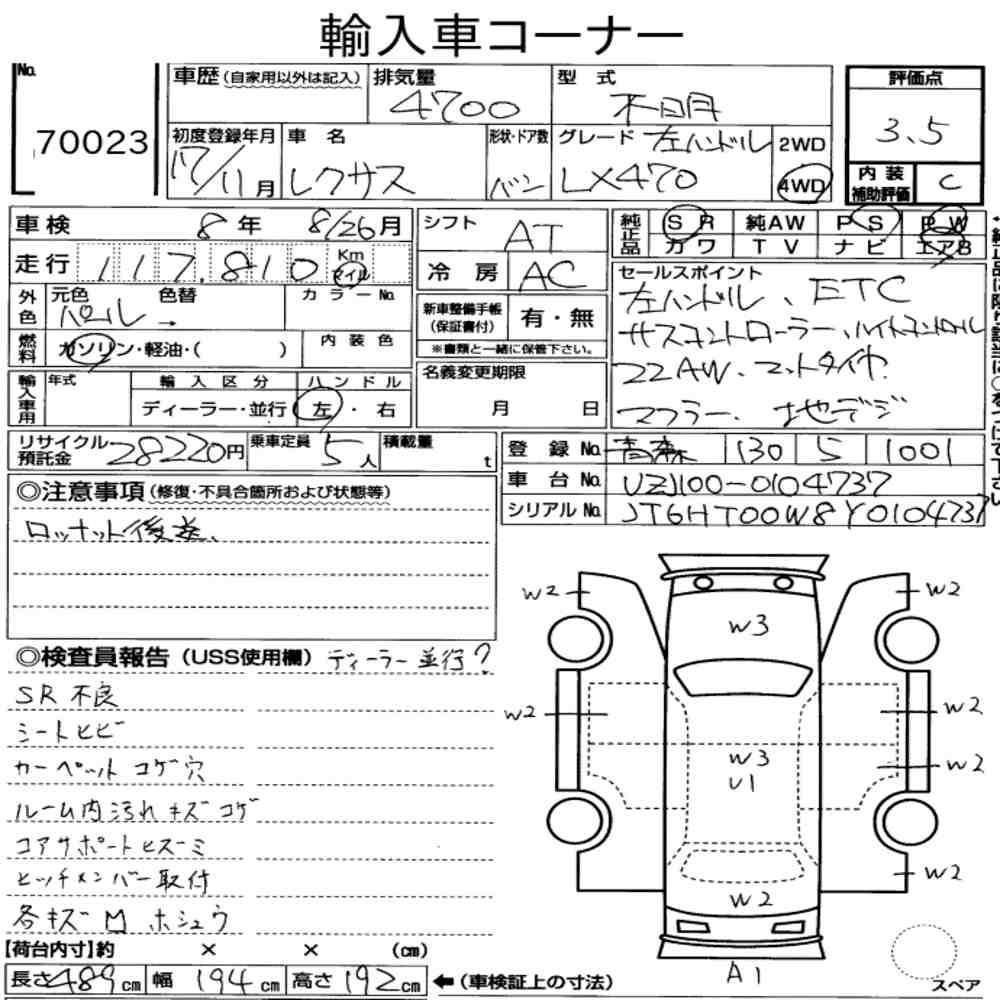 輸入車コーナー
No. 70023
車歴(自家用以外は記入) 排気量 4700 型式 不明
初度登録年月 17/11月 車名 レクサス 形状・ドア数 バン グレード 左ハンドル LX470 2WD 4WD
評価点 3.5
内装補助評価 C
車検 8年 8/26月
走行 117,810 Km マイル
外色 元色 パール 色替 カラーNo.
燃料 ガソリン・軽油・( ) 内装色
輸入車用 年式 輸入区分 ディーラー・並行 ハンドル 左・右
リサイクル預託金 28220円 乗車定員 5人 積載量 t
シフト AT
冷房 AC
新車整備手帳(保証書付) 有・無
※書類と一緒に保管下さい。
名義変更期限 月 日
純正品 SR 純AW PS PW
カワ TV ナビ エアB
セールスポイント
左ハンドル、ETC
サスコントローラー、ハイトコントロール
22AW、マットタイヤ
マフラー、地デジ
登録No. 青森 130 ら 1001
車台No. UZJ100-0104737
シリアルNo. JT6HT00W8Y0104737
◎注意事項(修復・不具合箇所および状態等)
ロッナット後送、
◎検査員報告(USS使用欄) ディーラー並行?
SR不良
シートヒビ
カーペットコゲ穴
ルーム内汚れキズコゲ
コアサポートヒズミ
ヒッチメンバー取付
各キズ凹ホシュウ
【荷台内寸】約 × × (cm)
長さ489cm 幅194cm 高さ192cm ←(車検証上の寸法)
W2 W2
W3
W2 W2
W3 W2
U1
W2
W2
A1
スペア